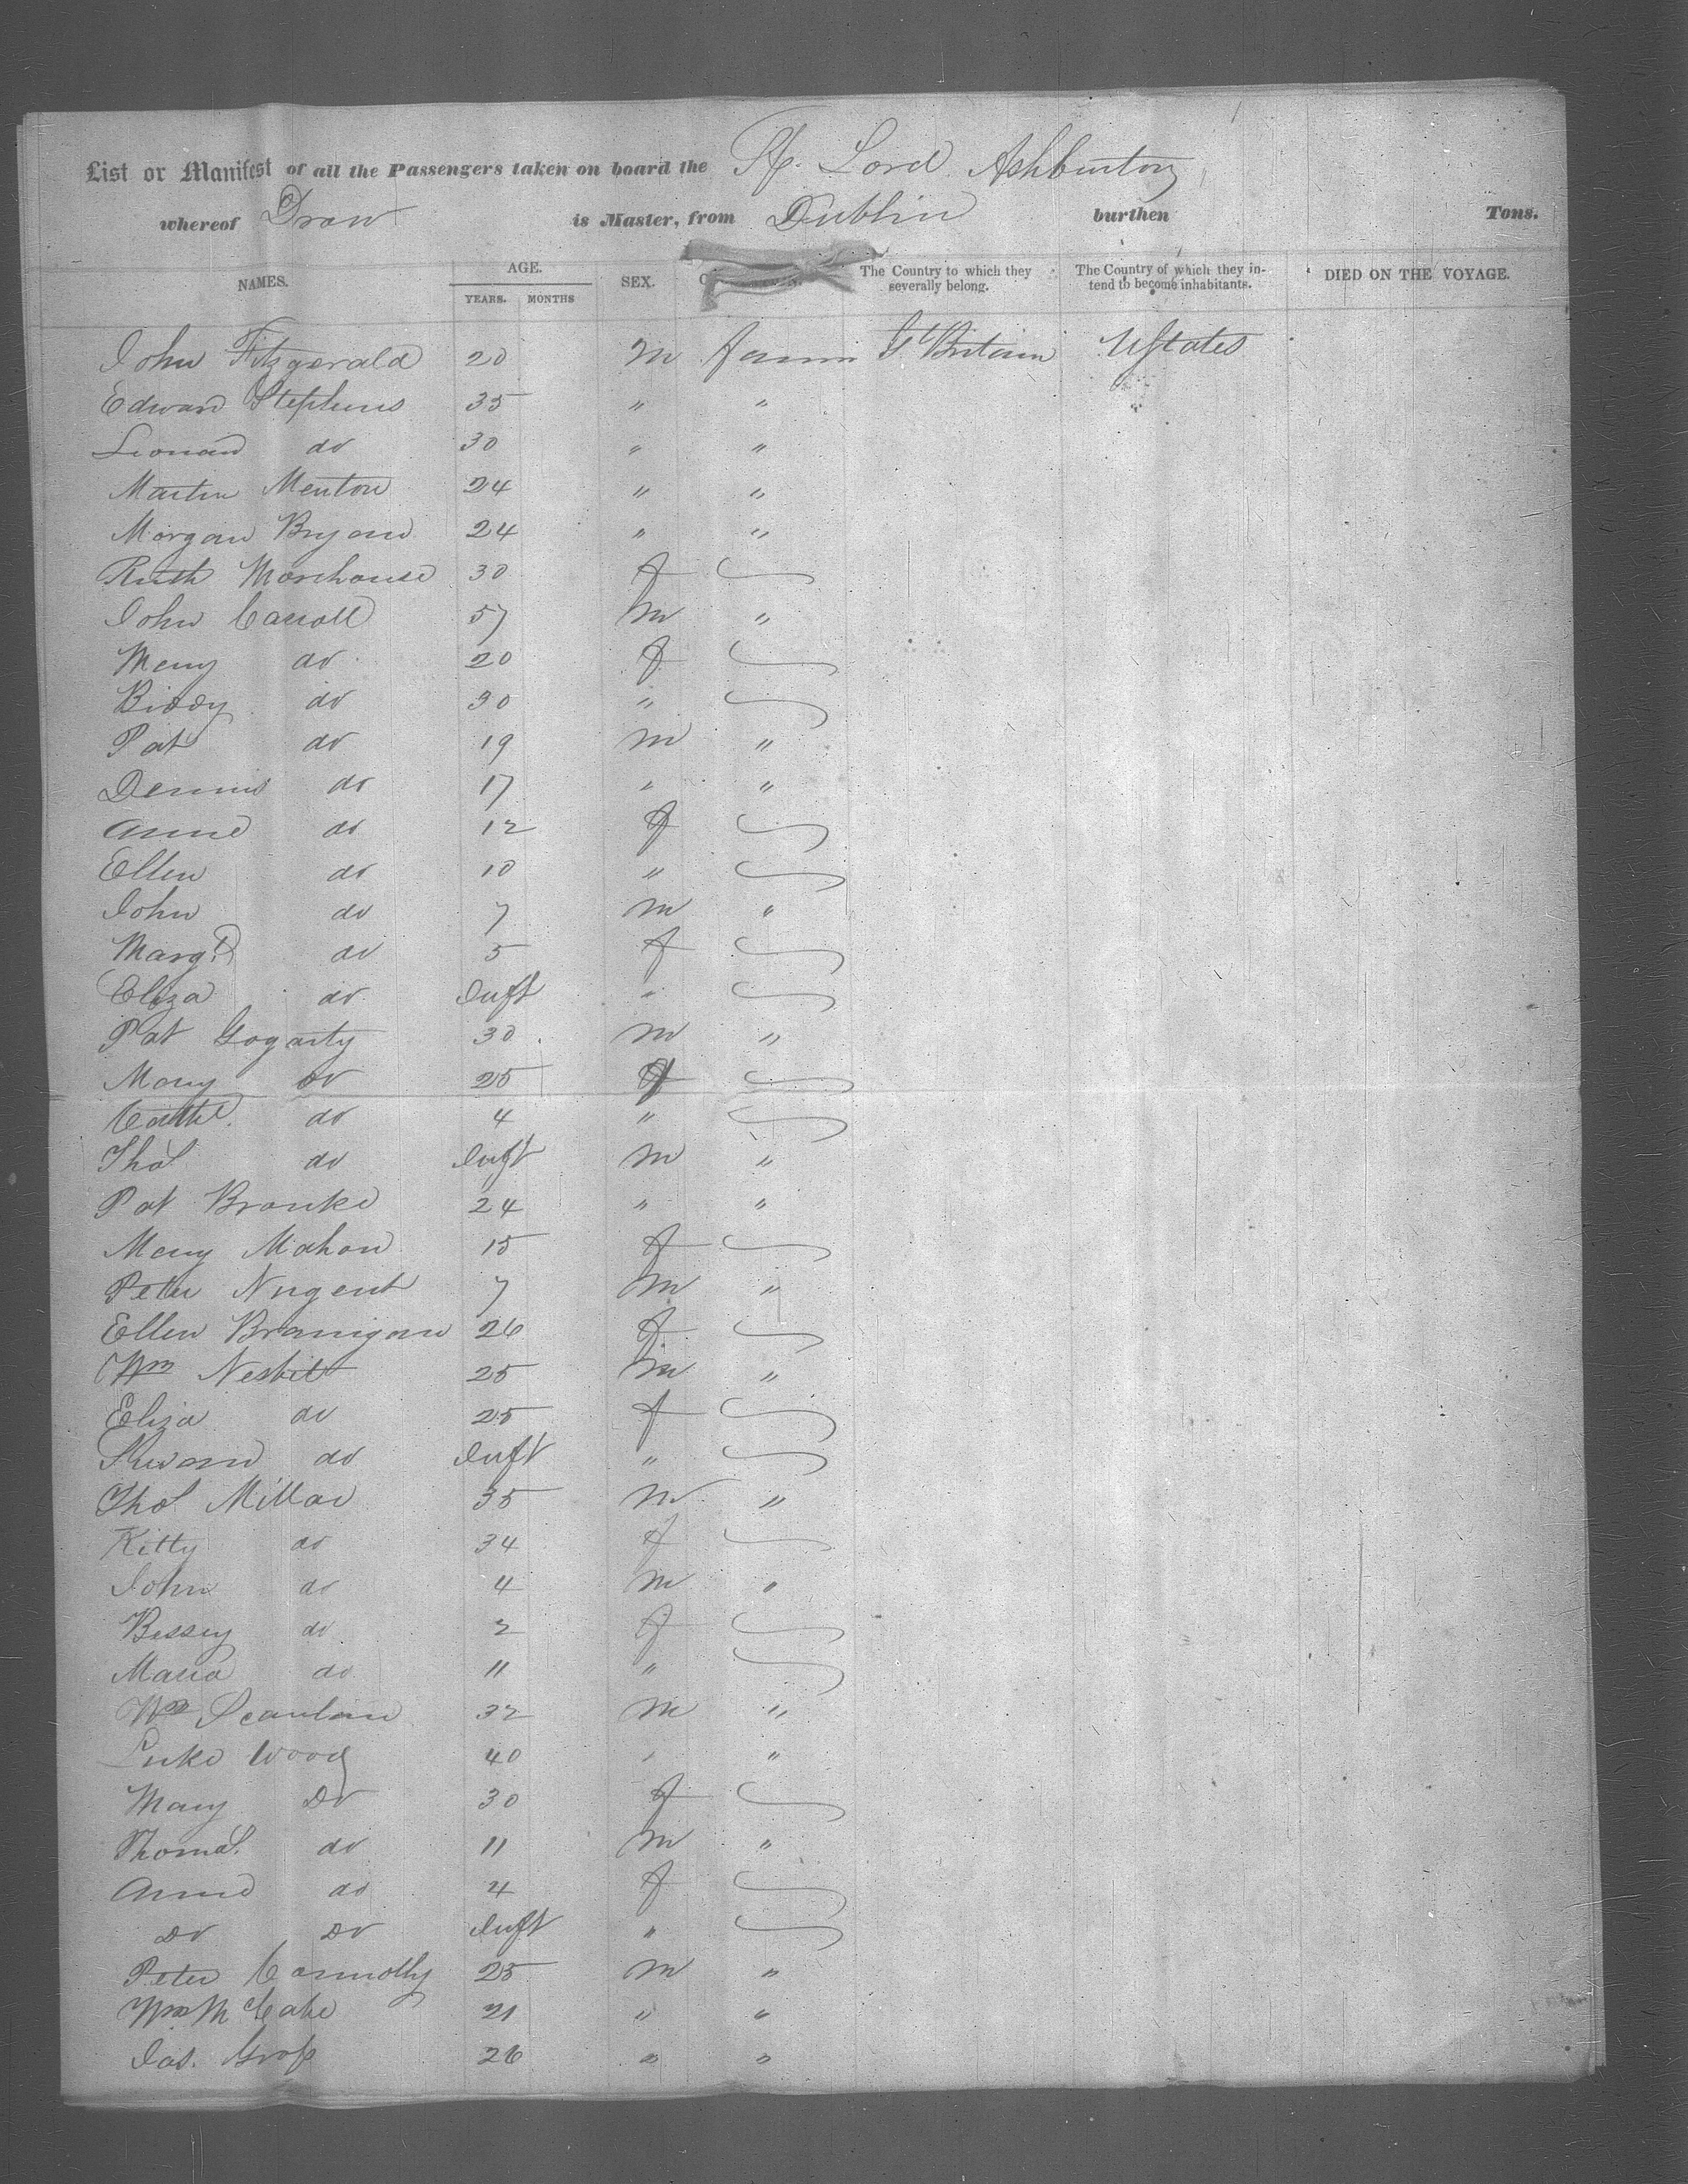 List or Manifest of all the Passengers taken on board the Lord Ashburton
whereof Drow is Master, from Dublin burthen Tons.
NAMES. AGE. YEARS. MONTHS SEX. The Country to which they severally belong. The Country of which they intend to become inhabitants. DIED ON THE VOYAGE.
John Fitzgerald 20 m Farmer Gt Britain UStates
Edward Stephens 35 " "
Leonard do 30 " "
Martin Menton 24 " "
Morgan Bryan 24 " "
Ruth Morehouse 30 f
John Carroll 57 m "
Mary do 20 f
Biddy do 30 "
Pat do 19 m "
Dennis do 17 " "
Anne do 12 f
Ellen do 10 "
John do 7 m "
Margt do 5 f
Eliza do Inft "
Pat Gogarty 30 m "
Mary do 25 f
Cathe do 4 "
Thos do Inft m "
Pat Bronke 24 " "
Mary Mahon 15 f
Peter Nugent 7 m "
Ellen Branigan 26 f
Wm Nesbitt 25 m "
Eliza do 25 f
do Inft "
Thos Millar 35 m "
Kitty do 34 f
John do 4 m "
Bessey do 2 f
Maria do 11 "
Wm Scanlan 32 m "
Luke Wood 40 " "
Mary Do 30 f
Thomas do 11 m "
Anne do 4 f
Do Do Inft "
Peter Connolly 25 m "
Wm McCabe 21 " "
Jas. Gross 26 " "